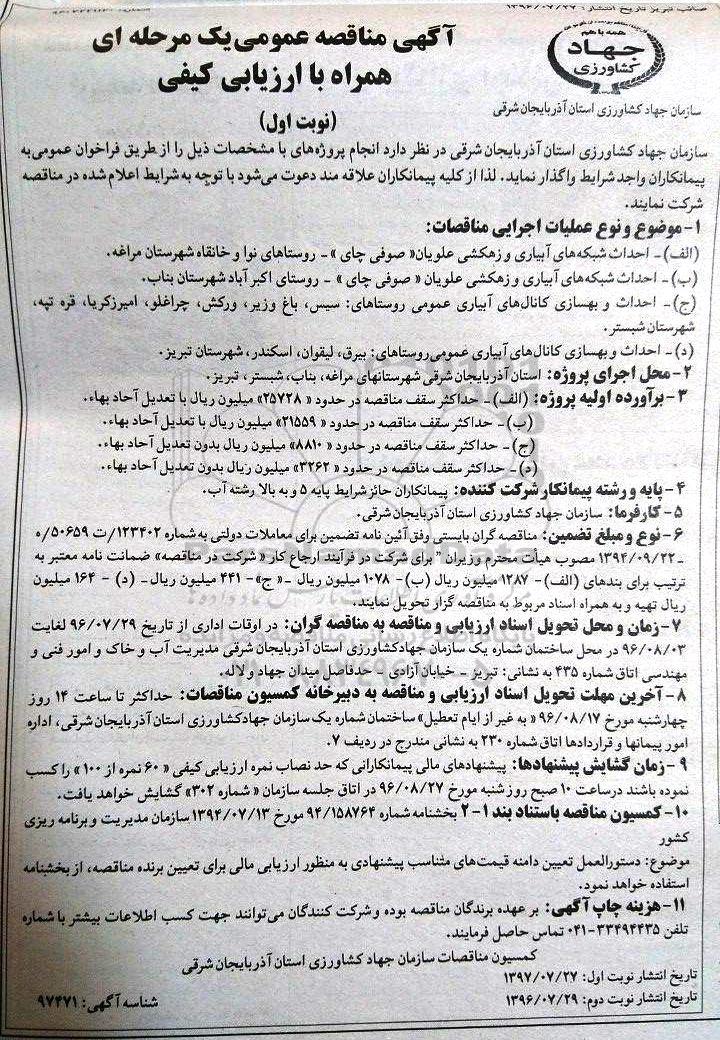 صائب تبریز تاریخ انتشار: ۱۳۹۶/۰۷/۲۷
آگهی مناقصه عمومی یک مرحله ای
همراه با ارزیابی کیفی
(نوبت اول)
همه با هم
جهاد
کشاورزی
سازمان جهاد کشاورزی استان آذربایجان شرقی
سازمان جهاد کشاورزی استان آذربایجان شرقی در نظر دارد انجام پروژه‌های با مشخصات ذیل را از طریق فراخوان عمومی به
پیمانکاران واجد شرایط واگذار نماید. لذا از کلیه پیمانکاران علاقه مند دعوت می‌شود با توجه به شرایط اعلام شده در مناقصه
شرکت نمایند.
۱- موضوع و نوع عملیات اجرایی مناقصات:
(الف)- احداث شبکه‌های آبیاری و زهکشی علویان« صوفی چای » - روستاهای نوا و خانقاه شهرستان مراغه.
(ب)- احداث شبکه‌های آبیاری و زهکشی علویان « صوفی چای » - روستای اکبر آباد شهرستان بناب.
(ج)- احداث و بهسازی کانال‌های آبیاری عمومی روستاهای: سیس، باغ وزیر، ورکش، چراغلو، امیرزکریا، قره تپه،
شهرستان شبستر.
(د)- احداث و بهسازی کانال‌های آبیاری عمومی روستاهای: بیرق، لیقوان، اسکندر، شهرستان تبریز.
۲- محل اجرای پروژه: استان آذربایجان شرقی شهرستانهای مراغه، بناب، شبستر، تبریز.
۳- برآورده اولیه پروژه: (الف)- حداکثر سقف مناقصه در حدود «۲۵۷۲۸» میلیون ریال با تعدیل آحاد بهاء.
(ب)- حداکثر سقف مناقصه در حدود « ۲۱۵۵۹» میلیون ریال با تعدیل آحاد بهاء.
(ج)- حداکثر سقف مناقصه در حدود « ۸۸۱۰» میلیون ریال بدون تعدیل آحاد بهاء.
(د)- حداکثر سقف مناقصه در حدود « ۳۲۶۲» میلیون ریال بدون تعدیل آحاد بهاء.
۴- پایه و رشته پیمانکار شرکت کننده: پیمانکاران حائز شرایط پایه ۵ و به بالا رشته آب.
۵- کارفرما: سازمان جهاد کشاورزی استان آذربایجان شرقی.
۶- نوع و مبلغ تضمین: مناقصه گران بایستی وفق آئین نامه تضمین برای معاملات دولتی به شماره ۱۲۳۴۰۲/ت ۵۰۶۵۹/ه
-۱۳۹۴/۰۹/۲۲ مصوب هیأت محترم وزیران " برای شرکت در فرآیند ارجاع کار « شرکت در مناقصه» ضمانت نامه معتبر به
ترتیب برای بندهای (الف)- ۱۲۸۷ میلیون ریال (ب)- ۱۰۷۸ میلیون ریال -« ج»- ۴۴۱ میلیون ریال - (د) - ۱۶۴ میلیون
ریال تهیه و به همراه اسناد مربوط به مناقصه گزار تحویل نمایند.
۷- زمان و محل تحویل اسناد ارزیابی و مناقصه به مناقصه گران: در اوقات اداری از تاریخ ۹۶/۰۷/۲۹ لغایت
۹۶/۰۸/۰۳ در محل ساختمان شماره یک سازمان جهادکشاورزی استان آذربایجان شرقی مدیریت آب و خاک و امور فنی و
مهندسی اتاق شماره ۴۳۵ به نشانی: تبریز - خیابان آزادی - حدفاصل میدان جهاد و لاله.
۸- آخرین مهلت تحویل اسناد ارزیابی و مناقصه به دبیرخانه کمسیون مناقصات: حداکثر تا ساعت ۱۴ روز
چهارشنبه مورخ ۹۶/۰۸/۱۷ « به غیر از ایام تعطیل» ساختمان شماره یک سازمان جهادکشاورزی استان آذربایجان شرقی، اداره
امور پیمانها و قراردادها اتاق شماره ۲۳۰ به نشانی مندرج در ردیف ۷.
۹- زمان گشایش پیشنهادها: پیشنهادهای مالی پیمانکارانی که حد نصاب نمره ارزیابی کیفی « ۶۰ نمره از ۱۰۰ » را کسب
نموده باشند درساعت ۱۰ صبح روز شنبه مورخ ۹۶/۰۸/۲۷ در اتاق جلسه سازمان « شماره ۳۰۲» گشایش خواهد یافت.
۱۰- کمسیون مناقصه باستناد بند ۱-۲ بخشنامه شماره ۹۴/۱۵۸۷۶۴ مورخ ۱۳۹۴/۰۷/۱۳ سازمان مدیریت و برنامه ریزی
کشور
موضوع: دستورالعمل تعیین دامنه قیمت‌های متناسب پیشنهادی به منظور ارزیابی مالی برای تعیین برنده مناقصه، از بخشنامه
استفاده خواهد نمود.
۱۱- هزینه چاپ آگهی: بر عهده برندگان مناقصه بوده و شرکت کنندگان می‌توانند جهت کسب اطلاعات بیشتر با شماره
تلفن ۳۳۴۹۴۴۳۵-۰۴۱ تماس حاصل فرمایند.
کمسیون مناقصات سازمان جهاد کشاورزی استان آذربایجان شرقی
تاریخ انتشار نوبت اول: ۱۳۹۷/۰۷/۲۷
تاریخ انتشار نوبت دوم: ۱۳۹۶/۰۷/۲۹
شناسه آگهی: ۹۷۴۷۱